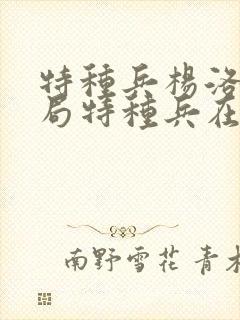 特種兵楊洛
局特種兵在
南野雪花 青木